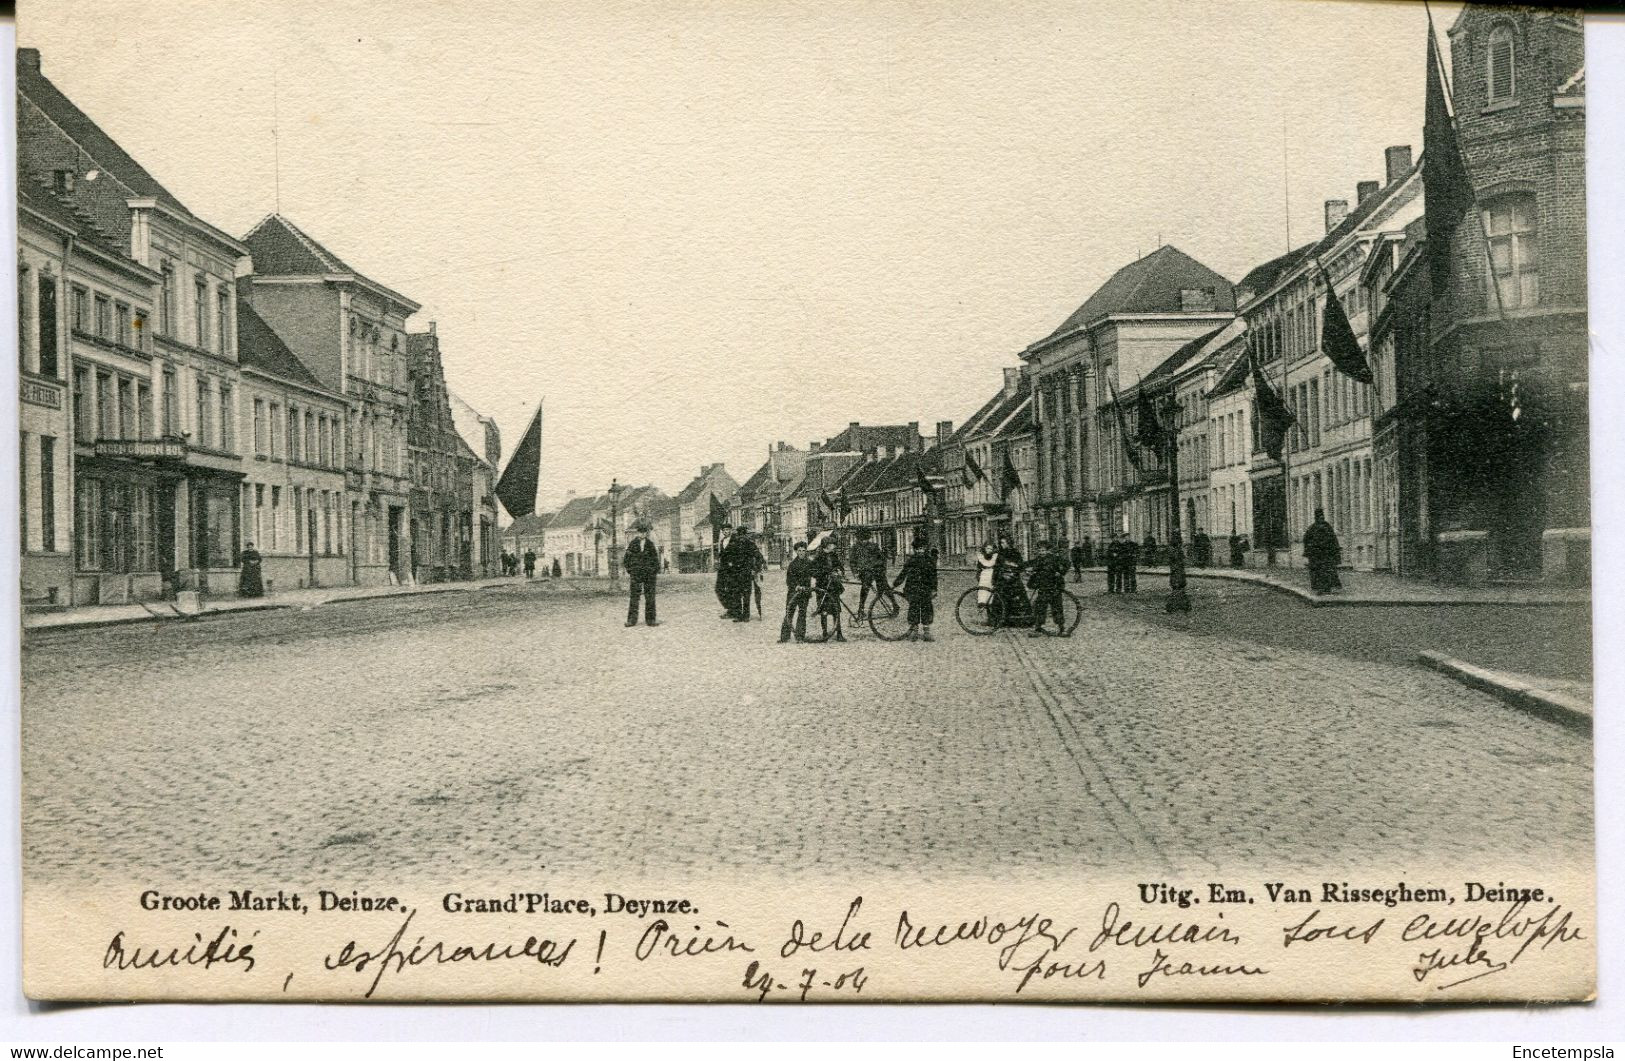 PIETERS
Groote Markt, Deinze. Grand'Place, Deynze.
Uitg. Em. Van Risseghem, Deinze.
Amitiés, espérances! Prièr de la renvoyer demain sous enveloppe
24-7-04 pour Jeanne Jules
www.delcampe.net
Encetempsla